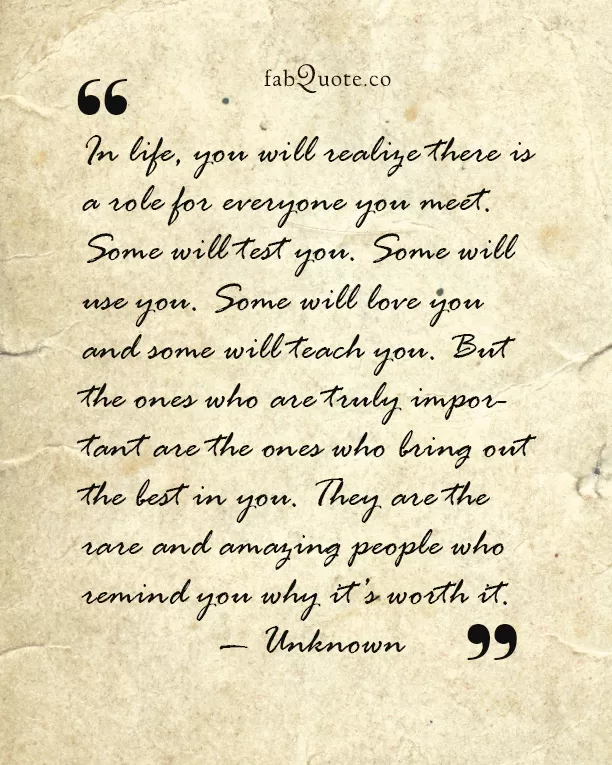 fabQuote.co
“
In life, you will realize there is
a role for everyone you meet.
Some will test you. Some will
use you. Some will love you
and some will teach you. But
the ones who are truly impor-
tant are the ones who bring out
the best in you. They are the
rare and amazing people who
remind you why it's worth it.
— Unknown ”